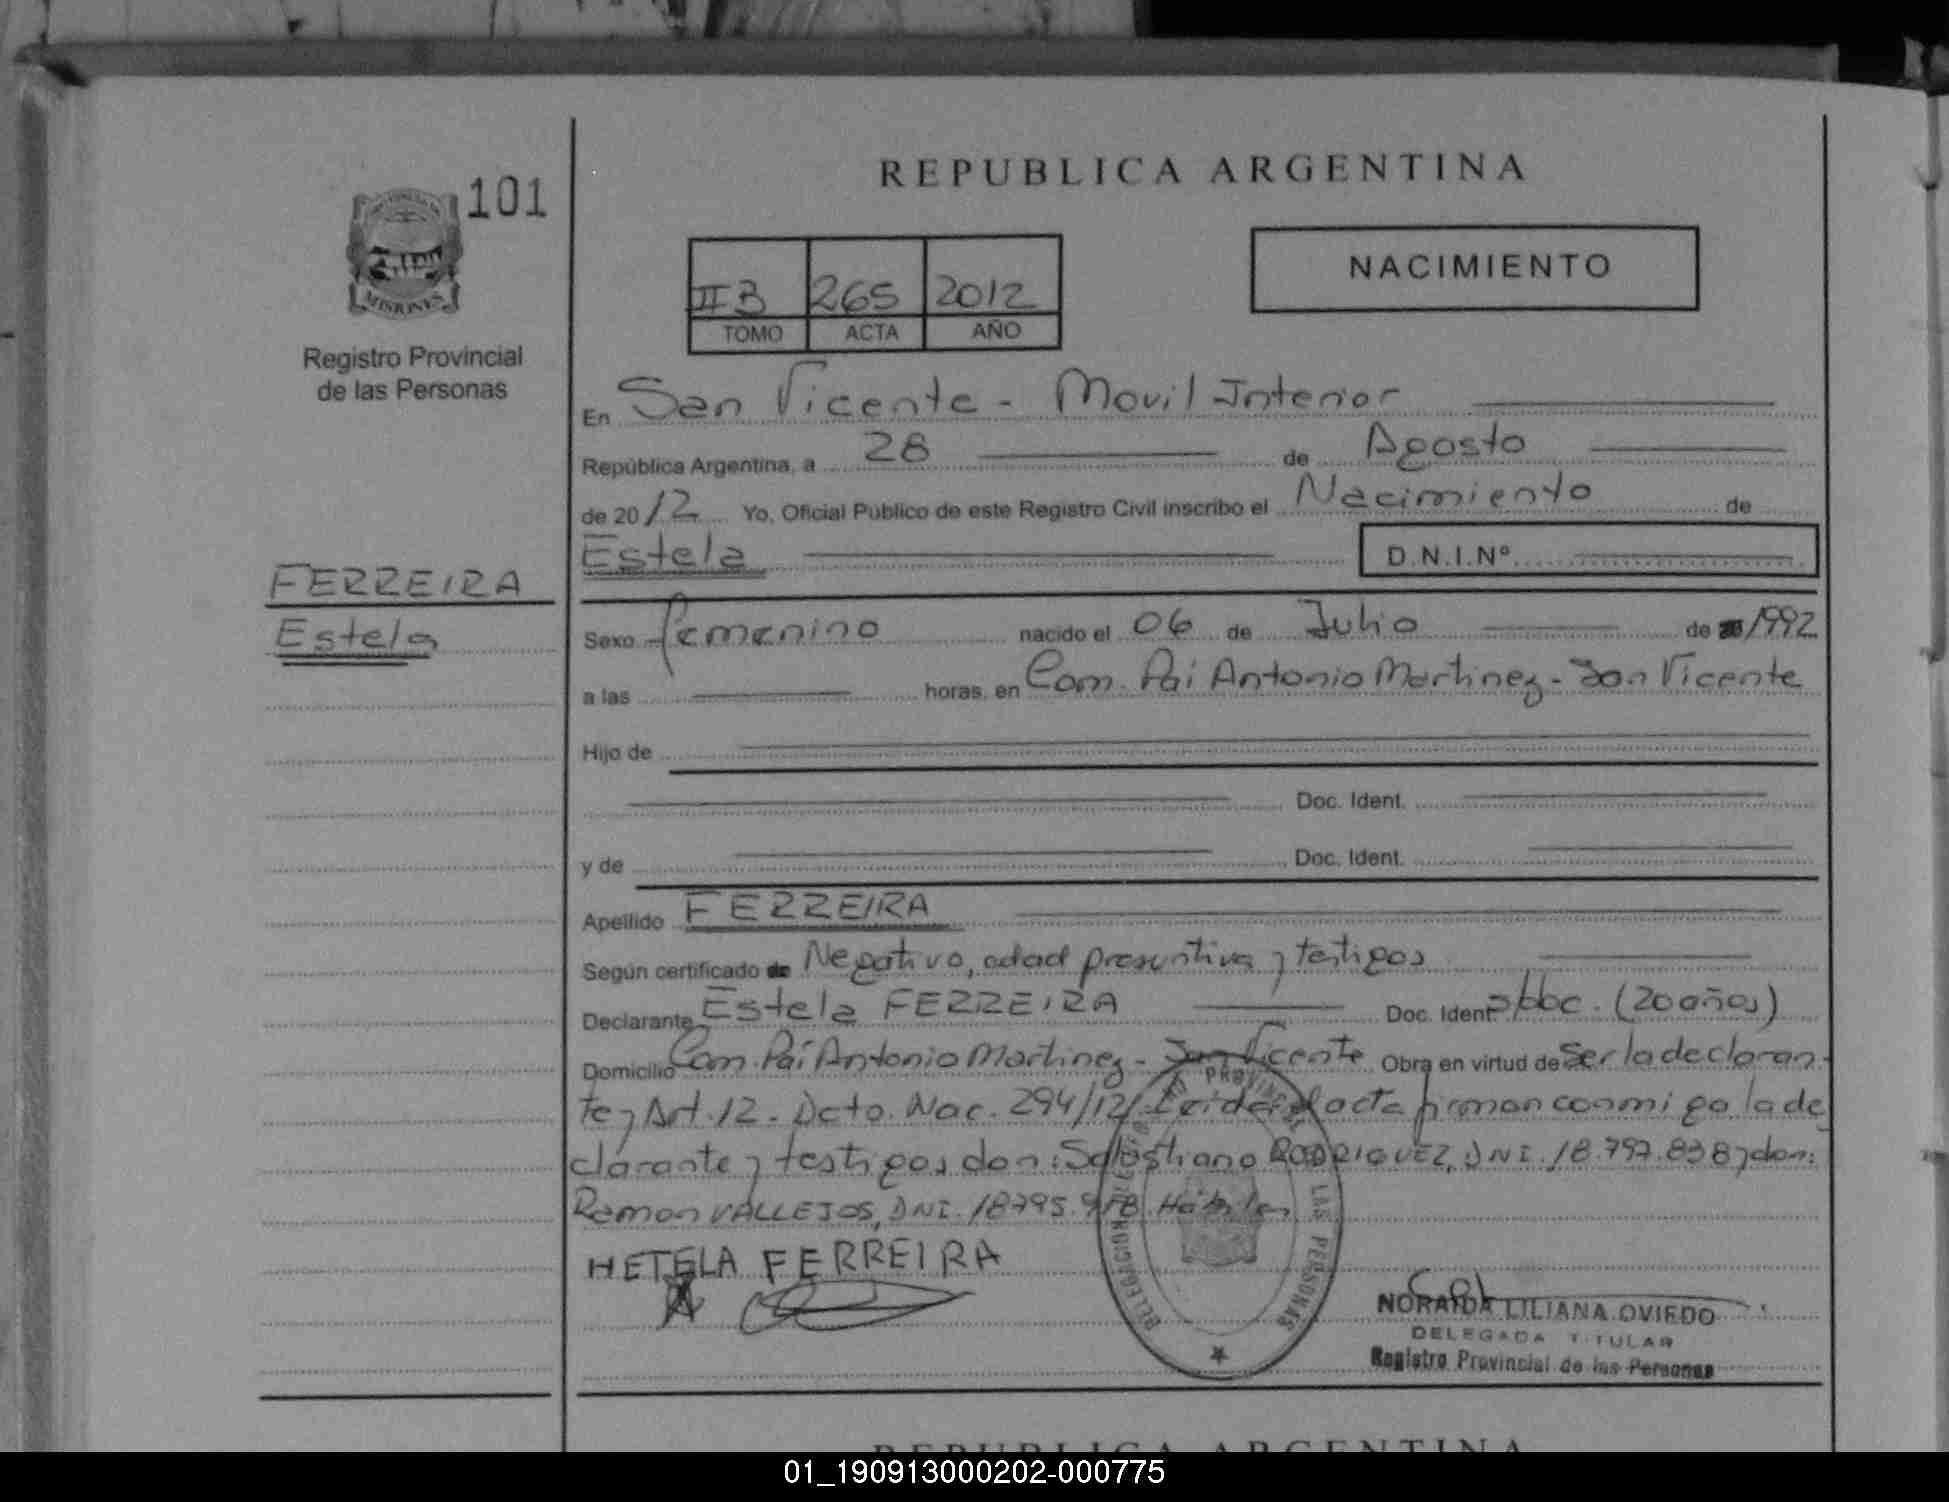 REPUBLICA ARGENTINA
101
MISIONES
Registro Provincial
de las Personas
II B 265 2012
TOMO ACTA AÑO
NACIMIENTO
En San Vicente - Movil Interior
República Argentina, a 28 de Agosto
de 2012 Yo, Oficial Público de este Registro Civil inscribo el Nacimiento de
Estela D.N.I.Nº
FERREIRA
Estela
Sexo femenino nacido el 06 de Julio de 1992
a las horas, en Com. Pai Antonio Martinez - San Vicente
Hijo de
Doc. Ident.
y de Doc. Ident.
Apellido FERREIRA
Según certificado de Negativo, edad presuntiva y testigos
Declarante Estela FERREIRA Doc. Ident. (20 años)
Domicilio Com. Paí Antonio Martinez - San Vicente Obra en virtud de Ser la declaran-
te y Art. 12 - Dcto. Nac. 294/12. Leida el acta firman conmigo la de
clarante y testigos don: Salustiano RODRIGUEZ, DNI. 18.797.838 y don:
Ramon VALLEJOS, DNI. 18795.978. Habiles
HETELA FERREIRA
DELEGACION PROVINCIAL DE LAS PERSONAS
NORAIDA LILIANA OVIEDO
DELEGADA TITULAR
Registro Provincial de las Personas
REPUBLICA ARGENTINA
01_190913000202-000775